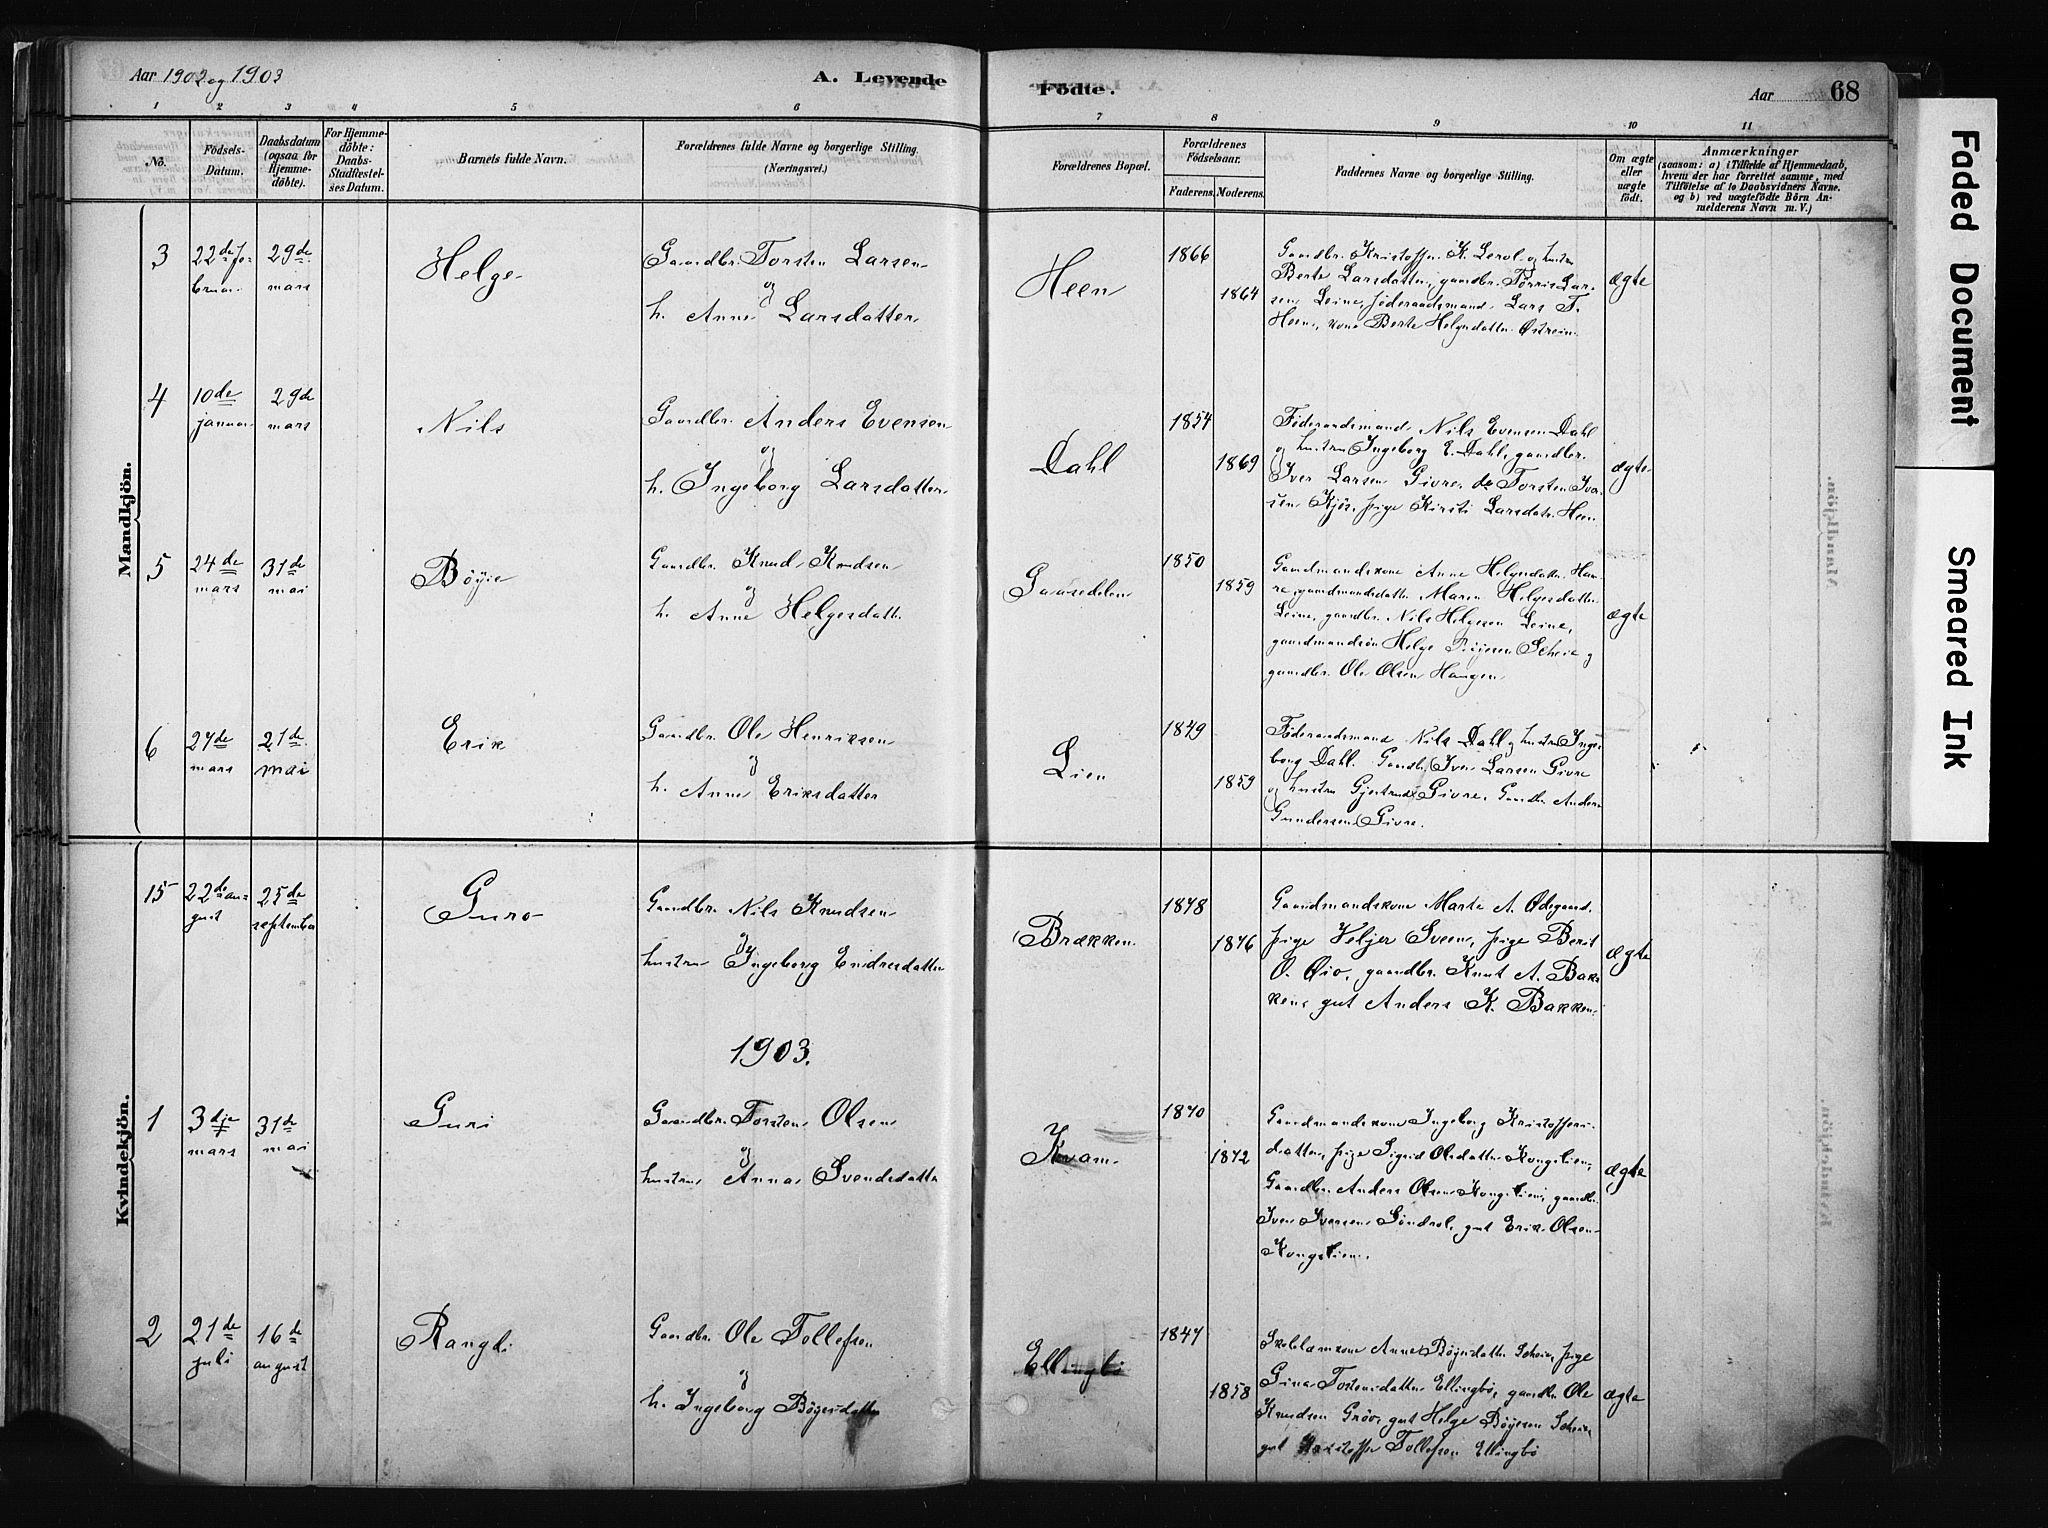 Aar 1902 og 1903
A. Levende
Födte.
Aar 68
1 2 3 4 5 6 7 8 9 10 11
No.
Födsels-
Datum.
Daabsdatum
(ogsaa for
Hjemme-
döbte).
For Hjemme-
döbte:
Daabs-
Stadfæstel-
ses Datum.
Barnets fulde Navn.
Forældrenes fulde Navne og borgerlige Stilling.
(Næringsvei.)
Forældrenes Bopæl.
Forældrenes
Födselsaar.
Faderens. Moderens.
Faddernes Navne og borgerlige Stilling.
Om ægte
eller
uægte
födt.
Anmærkninger
(saasom: a) i Tilfælde af Hjemmedaab,
hvem der har forrettet samme, med
Tilföielse af to Daabsvidners Navne.
og b) ved uægtefödte Börn An-
melderens Navn m. V.)
Mandkjön.
3
22de fe-
bruar
29de
mars
Helge
Gaardbr. Torsten Larsen
og
h. Anne Larsdatter
Heen
1866
1864
Gaardbr. Kristoffer K. Lerol og hustru
Berte Larsdatter, gaardbr. Torris Lar-
sen Leine, föderaadsmand Lars T.
Heen, kone Berte Helgesdatter Östrein
ægte
4
10de
januar
29de
mars
Nils
Gaardbr. Anders Evensen
og
h. Ingeborg Larsdatter
Dahl
1854
1869
Föderaadsmand Nils Evensen Dahl
og hustru Ingeborg E. Dahl, gaardbr.
Iver Larsen Givre, do Torsten Iver-
sen Kjös, pige Kirsti Larsdatr. Heen
ægte
5
24de
mars
31de
mai
Böyie
Gaardbr. Knud Knudsen
og
h. Anne Helgesdatter
Gaasedelen
1850
1859
Gaardmandskone Anne Helgesdatter Ham-
re, gaardmandsdatter Maren Helgesdatter
Leine, gaardbr. Nils Helgesen Leine,
gaardmandsön Helge Böyesen Scheie og
gaardbr. Ole Olsen Haugen
ægte
6
27de
mars
21de
mai
Erik
Gaardbr. Ole Henriksen
og
h. Anne Eriksdatter
Lien
1849
1859
Föderaadsmand Nils Dahl og hustru Inge-
borg Dahl. Gaardbr. Iver Larsen Givre
og hustru Gjertrud Givre. Gaardbr. Anders
Gundersen Givre.
Kvindekjön.
15
22de au-
gust
25de
september
Guro
Gaardbr. Nils Knudsen
og
hustru Ingeborg Endresdatter
Brækken
1878
1876
Gaardmandskone Marte A. Ödegaard,
pige Veljer Sveen, pige Berit
O. Öio, gaardbr. Knut A. Bak-
ken, gut Anders K. Bakken.
ægte
1903.
1
3dje
mars
31de
mai
Guri
Gaardbr. Torsten Olsen
og
hustru Anna Svendsdatter
Kvam
1870
1872
Gaardmandskone Ingeborg Kristoffers-
datter, pige Sigrid Olsdatter Kongslien,
Gaardbr. Anders Olsen Kongslien, gaardbr.
Iver Iversen Söndrol, gut Erik Olsen
Kongslien.
ægte
2
21de
juli
16de
august
Rangdi
Gaardbr. Ole Tollefsen
og
h. Ingeborg Böyesdatter
Ellingbö
1847
1858
Skolelærerkone Anne Böyesdatter Scheie, pige
Gina Torstensdatter Ellingbö, gaardbr. Ole
Knudsen Gröv, gut Helge Böyesen Scheie,
gut Kristoffer Tollefsen Ellingbö
ægte
Faded Document
Smeared Ink